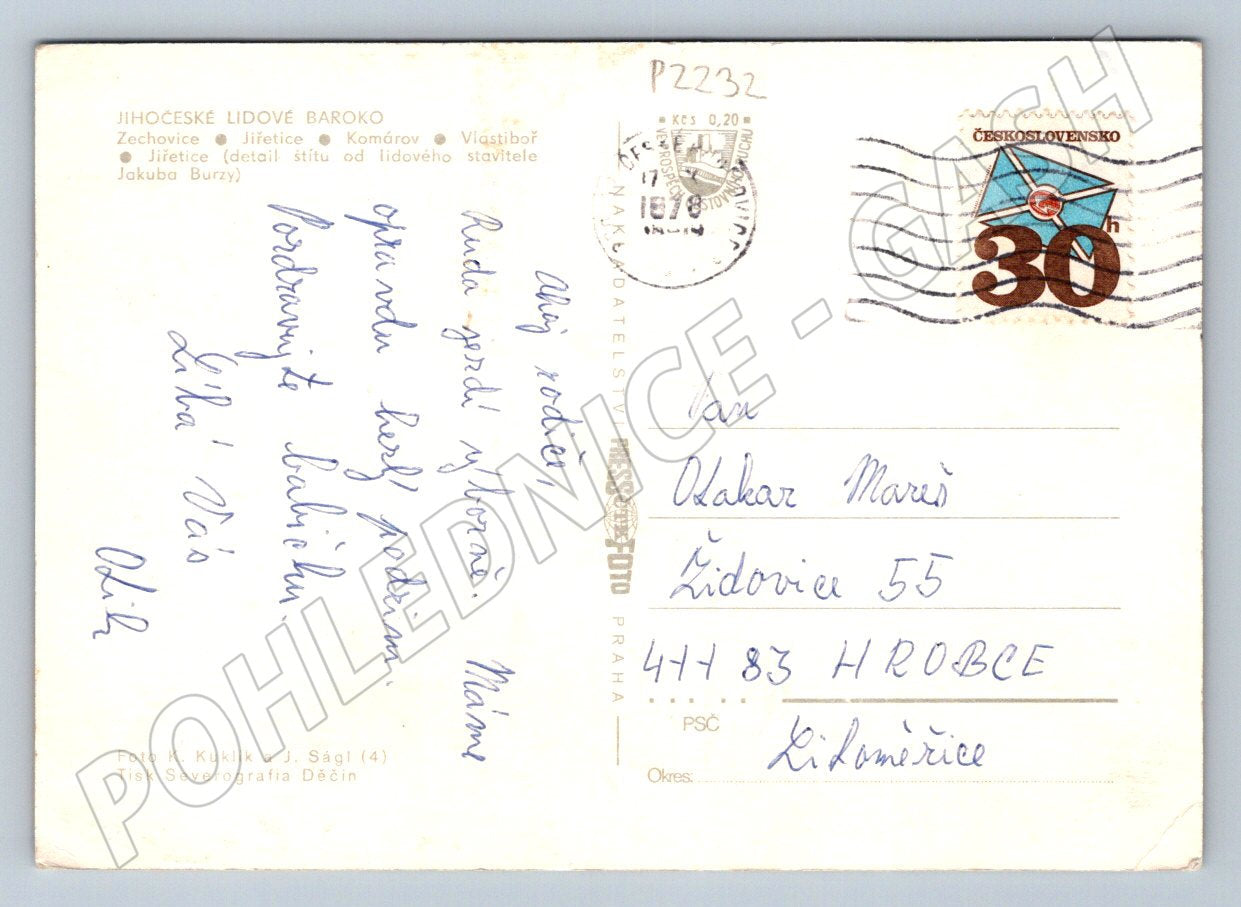 P2232
JIHOČESKÉ LIDOVÉ BAROKO
Zechovice ● Jiřetice ● Komárov ● Vlastiboř
● Jiřetice (detail štítu od lidového stavitele
Jakuba Burzy)
Ahoj rodiče,
Ruda jezdí výborně. Máme
opravdu hezký podzim.
Pozdravujte babičku.
Líbá Vás
Foto K. Kuklík a J. Ságl (4)
Tisk Severografia Děčín
NAKLADATELSTVÍ PRESSFOTO PRAHA
Kčs 0,20
17
1978
ČESKOSLOVENSKO
30h
Pan
Otakar Mareš
Židovice 55
411 83 HROBCE
PSČ
Litoměřice
Okres:
POHLEDNICE - GASH